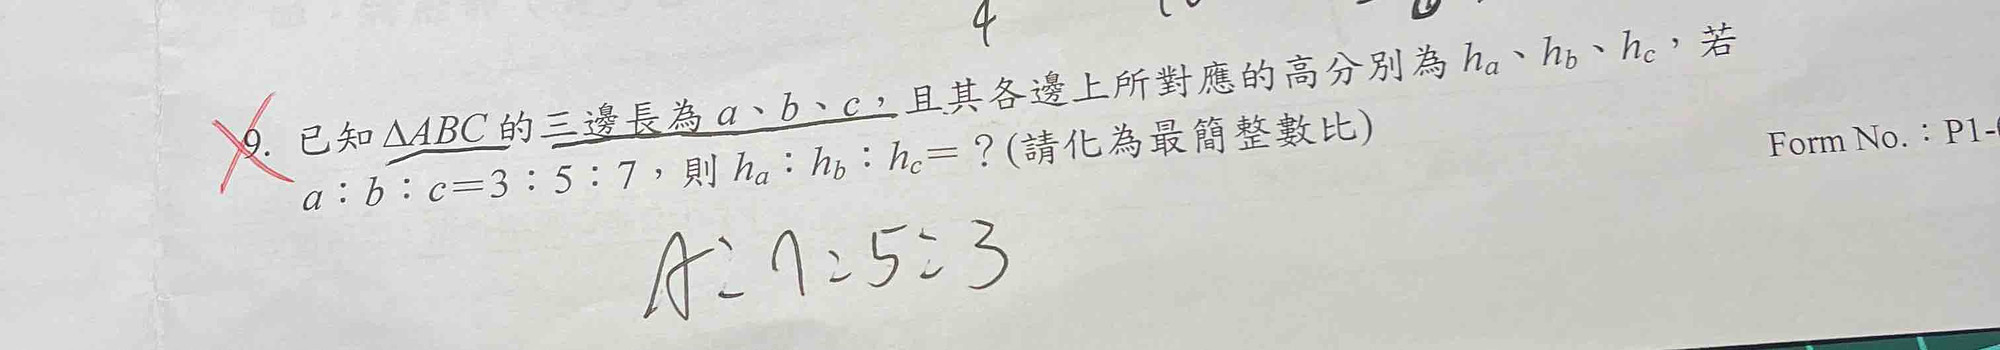 4
9. 已知 ΔABC 的三邊長為 a、b、c，且其各邊上所對應的高分別為 hₐ、h_b、h_c，若
a：b：c＝3：5：7，則 hₐ：h_b：h_c＝？(請化為最簡整數比)
Form No.：P1-
A：7：5：3